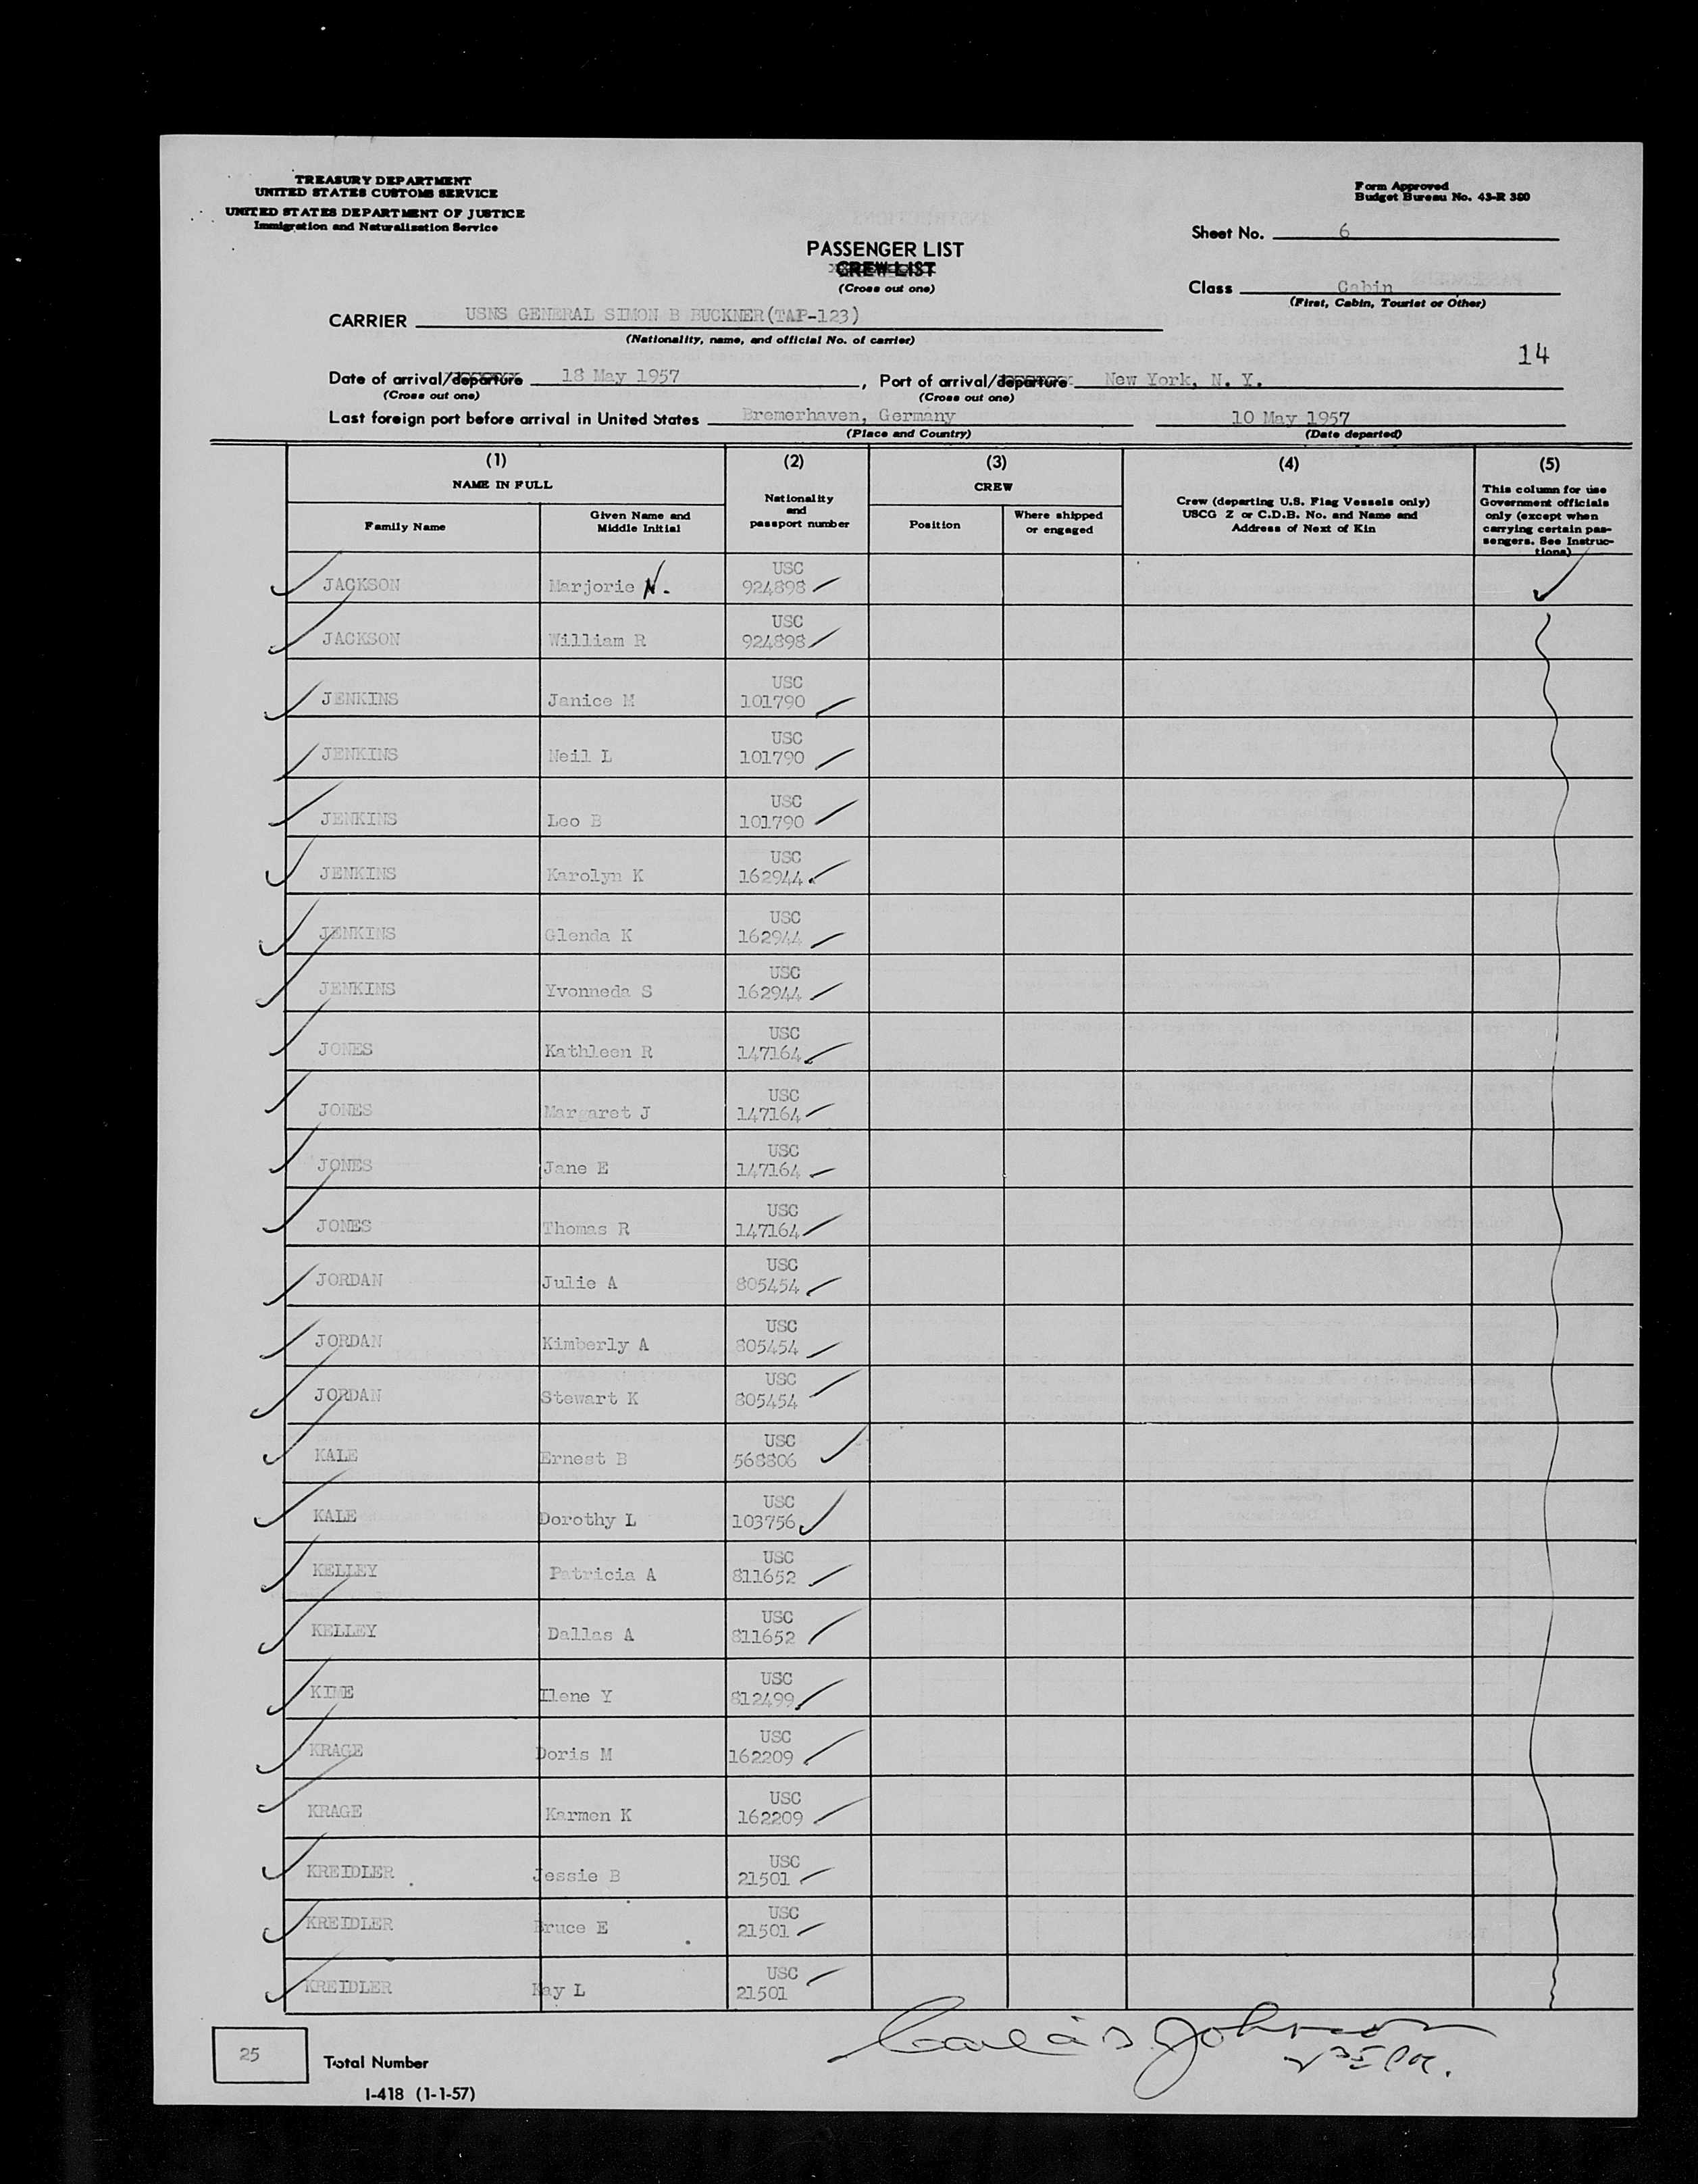 TREASURY DEPARTMENT
UNITED STATES CUSTOMS SERVICE
UNITED STATES DEPARTMENT OF JUSTICE
Immigration and Naturalization Service
Form Approved
Budget Bureau No. 43-R 380
Sheet No. 6
PASSENGER LIST
CREW LIST
(Cross out one)
Class Cabin
(First, Cabin, Tourist or Other)
CARRIER USNS GENERAL SIMON B BUCKNER(TAP-123)
(Nationality, name, and official No. of carrier)
14
Date of arrival/departure 18 May 1957, Port of arrival/departure New York, N. Y.
(Cross out one) (Cross out one)
Last foreign port before arrival in United States Bremerhaven, Germany 10 May 1957
(Place and Country) (Date departed)
(1) (2) (3) (4) (5)
NAME IN FULL
Family Name
Given Name and
Middle Initial
Nationality
and
passport number
CREW
Position
Where shipped
or engaged
Crew (departing U.S. Flag Vessels only)
USCG Z or C.D.B. No. and Name and
Address of Next of Kin
This column for use
Government officials
only (except when
carrying certain pas-
sengers. See Instruc-
tions)
USC
JACKSON Marjorie N. 924898
USC
JACKSON William R 924898
USC
JENKINS Janice M 101790
USC
JENKINS Neil L 101790
USC
JENKINS Leo B 101790
USC
JENKINS Karolyn K 162944
USC
JENKINS Glenda K 162944
USC
JENKINS Yvonneda S 162944
USC
JONES Kathleen R 147164
USC
JONES Margaret J 147164
USC
JONES Jane E 147164
USC
JONES Thomas R 147164
USC
JORDAN Julie A 805454
USC
JORDAN Kimberly A 805454
USC
JORDAN Stewart K 805454
USC
KALE Ernest B 568806
USC
KALE Dorothy L 103756
USC
KELLEY Patricia A 811652
USC
KELLEY Dallas A 811652
USC
KIME Ilene Y 812499
USC
KRAGE Doris M 162209
USC
KRAGE Karmen K 162209
USC
KREIDLER Jessie B 21501
USC
KREIDLER Bruce E 21501
USC
KREIDLER Kay L 21501
25 Total Number
I-418 (1-1-57)
Johnson